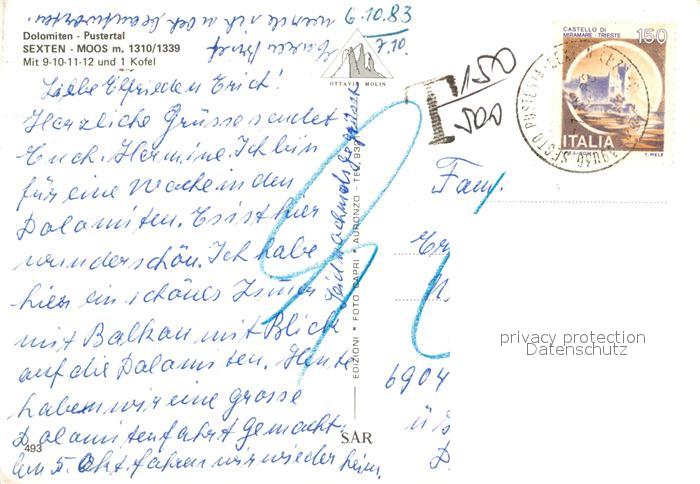 6.10.83
7.10.
Dolomiten - Pustertal
SEXTEN - MOOS m. 1310/1339
Mit 9-10-11-12 und 1 Kofel
Liebe Elfriede u Erich!
Herzliche Grüsse sendet
Euch. Hermine. Ich bin
für eine Woche in den
Dolomiten. Es ist hier
wunderschön. Ich habe
hier ein schönes Zimer
mit Balkon mit Blick
auf die Dolomiten. Heute
haben wir eine grosse
Dolomitenfahrt gemacht.
Am 5. Okt. fahren wir wieder heim.
Euren Brief
werde ich noch beantworten.
493
OTTAVIO MOLIN
EDIZIONI * FOTO CAPRI * AURONZO - TEL. 93
SAR
T 150
500
CASTELLO DI
MIRAMARE - TRIESTE
150
ITALIA
T. MELE
Fam.
Er
6904
privacy protection
Datenschutz